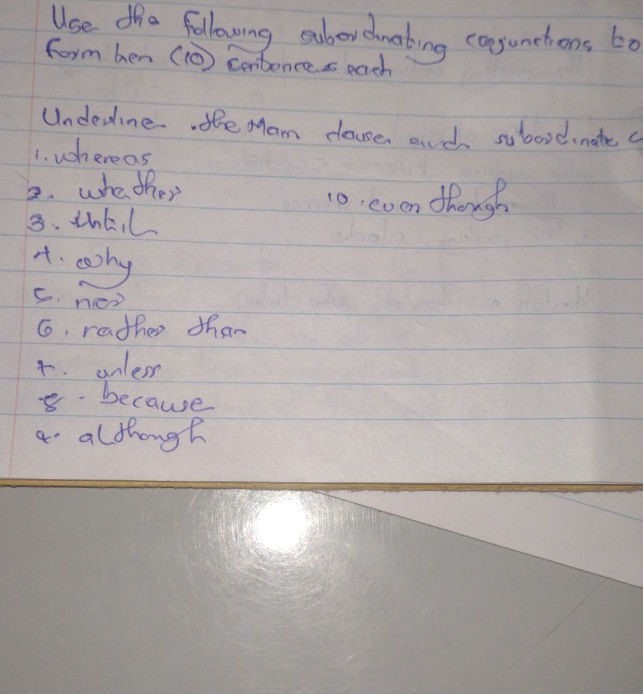 Use the following subordinating conjunctions to
form ten (10) sentences each
Underline the main clause and subordinate c
1. whereas
2. whether
3. until
4. why
5. nor
6. rather than
7. unless
8 - because
9. although
10. even though